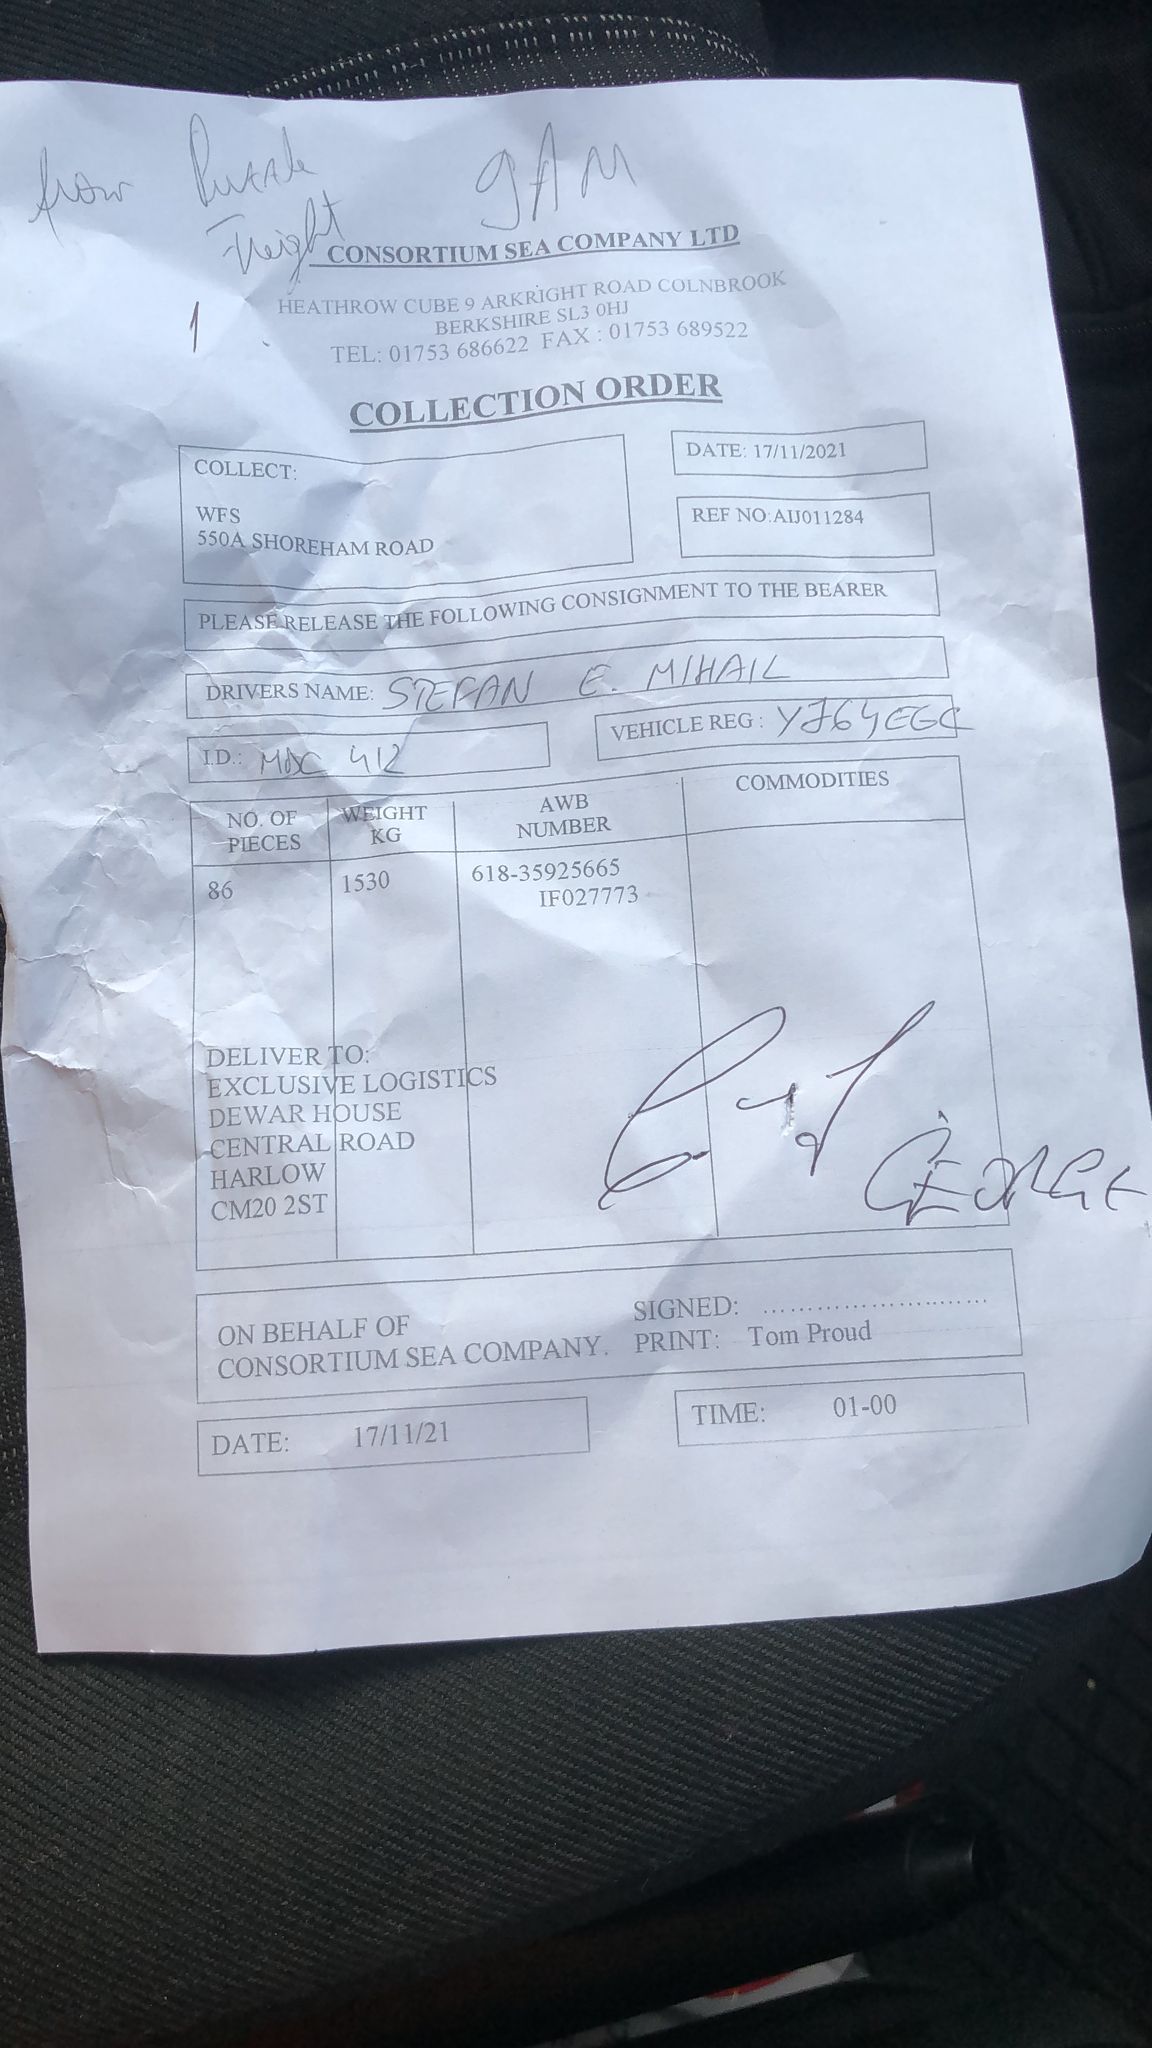 from Puzzle 9AM
Freight
CONSORTIUM SEA COMPANY LTD
1
HEATHROW CUBE 9 ARKRIGHT ROAD COLNBROOK
BERKSHIRE SL3 0HJ
TEL: 01753 686622 FAX : 01753 689522
COLLECTION ORDER
COLLECT:
DATE: 17/11/2021
WFS
550A SHOREHAM ROAD
REF NO:AIJ011284
PLEASE RELEASE THE FOLLOWING CONSIGNMENT TO THE BEARER
DRIVERS NAME: STEFAN E. MIHAIL
I.D.: MDC 412
VEHICLE REG :
NO. OF PIECES
WEIGHT KG
AWB NUMBER
COMMODITIES
86 1530 618-35925665
IF027773
DELIVER TO:
EXCLUSIVE LOGISTICS
DEWAR HOUSE
CENTRAL ROAD
HARLOW
CM20 2ST
GEORGE
ON BEHALF OF
CONSORTIUM SEA COMPANY.
SIGNED: ..........................
PRINT: Tom Proud
DATE: 17/11/21
TIME: 01-00